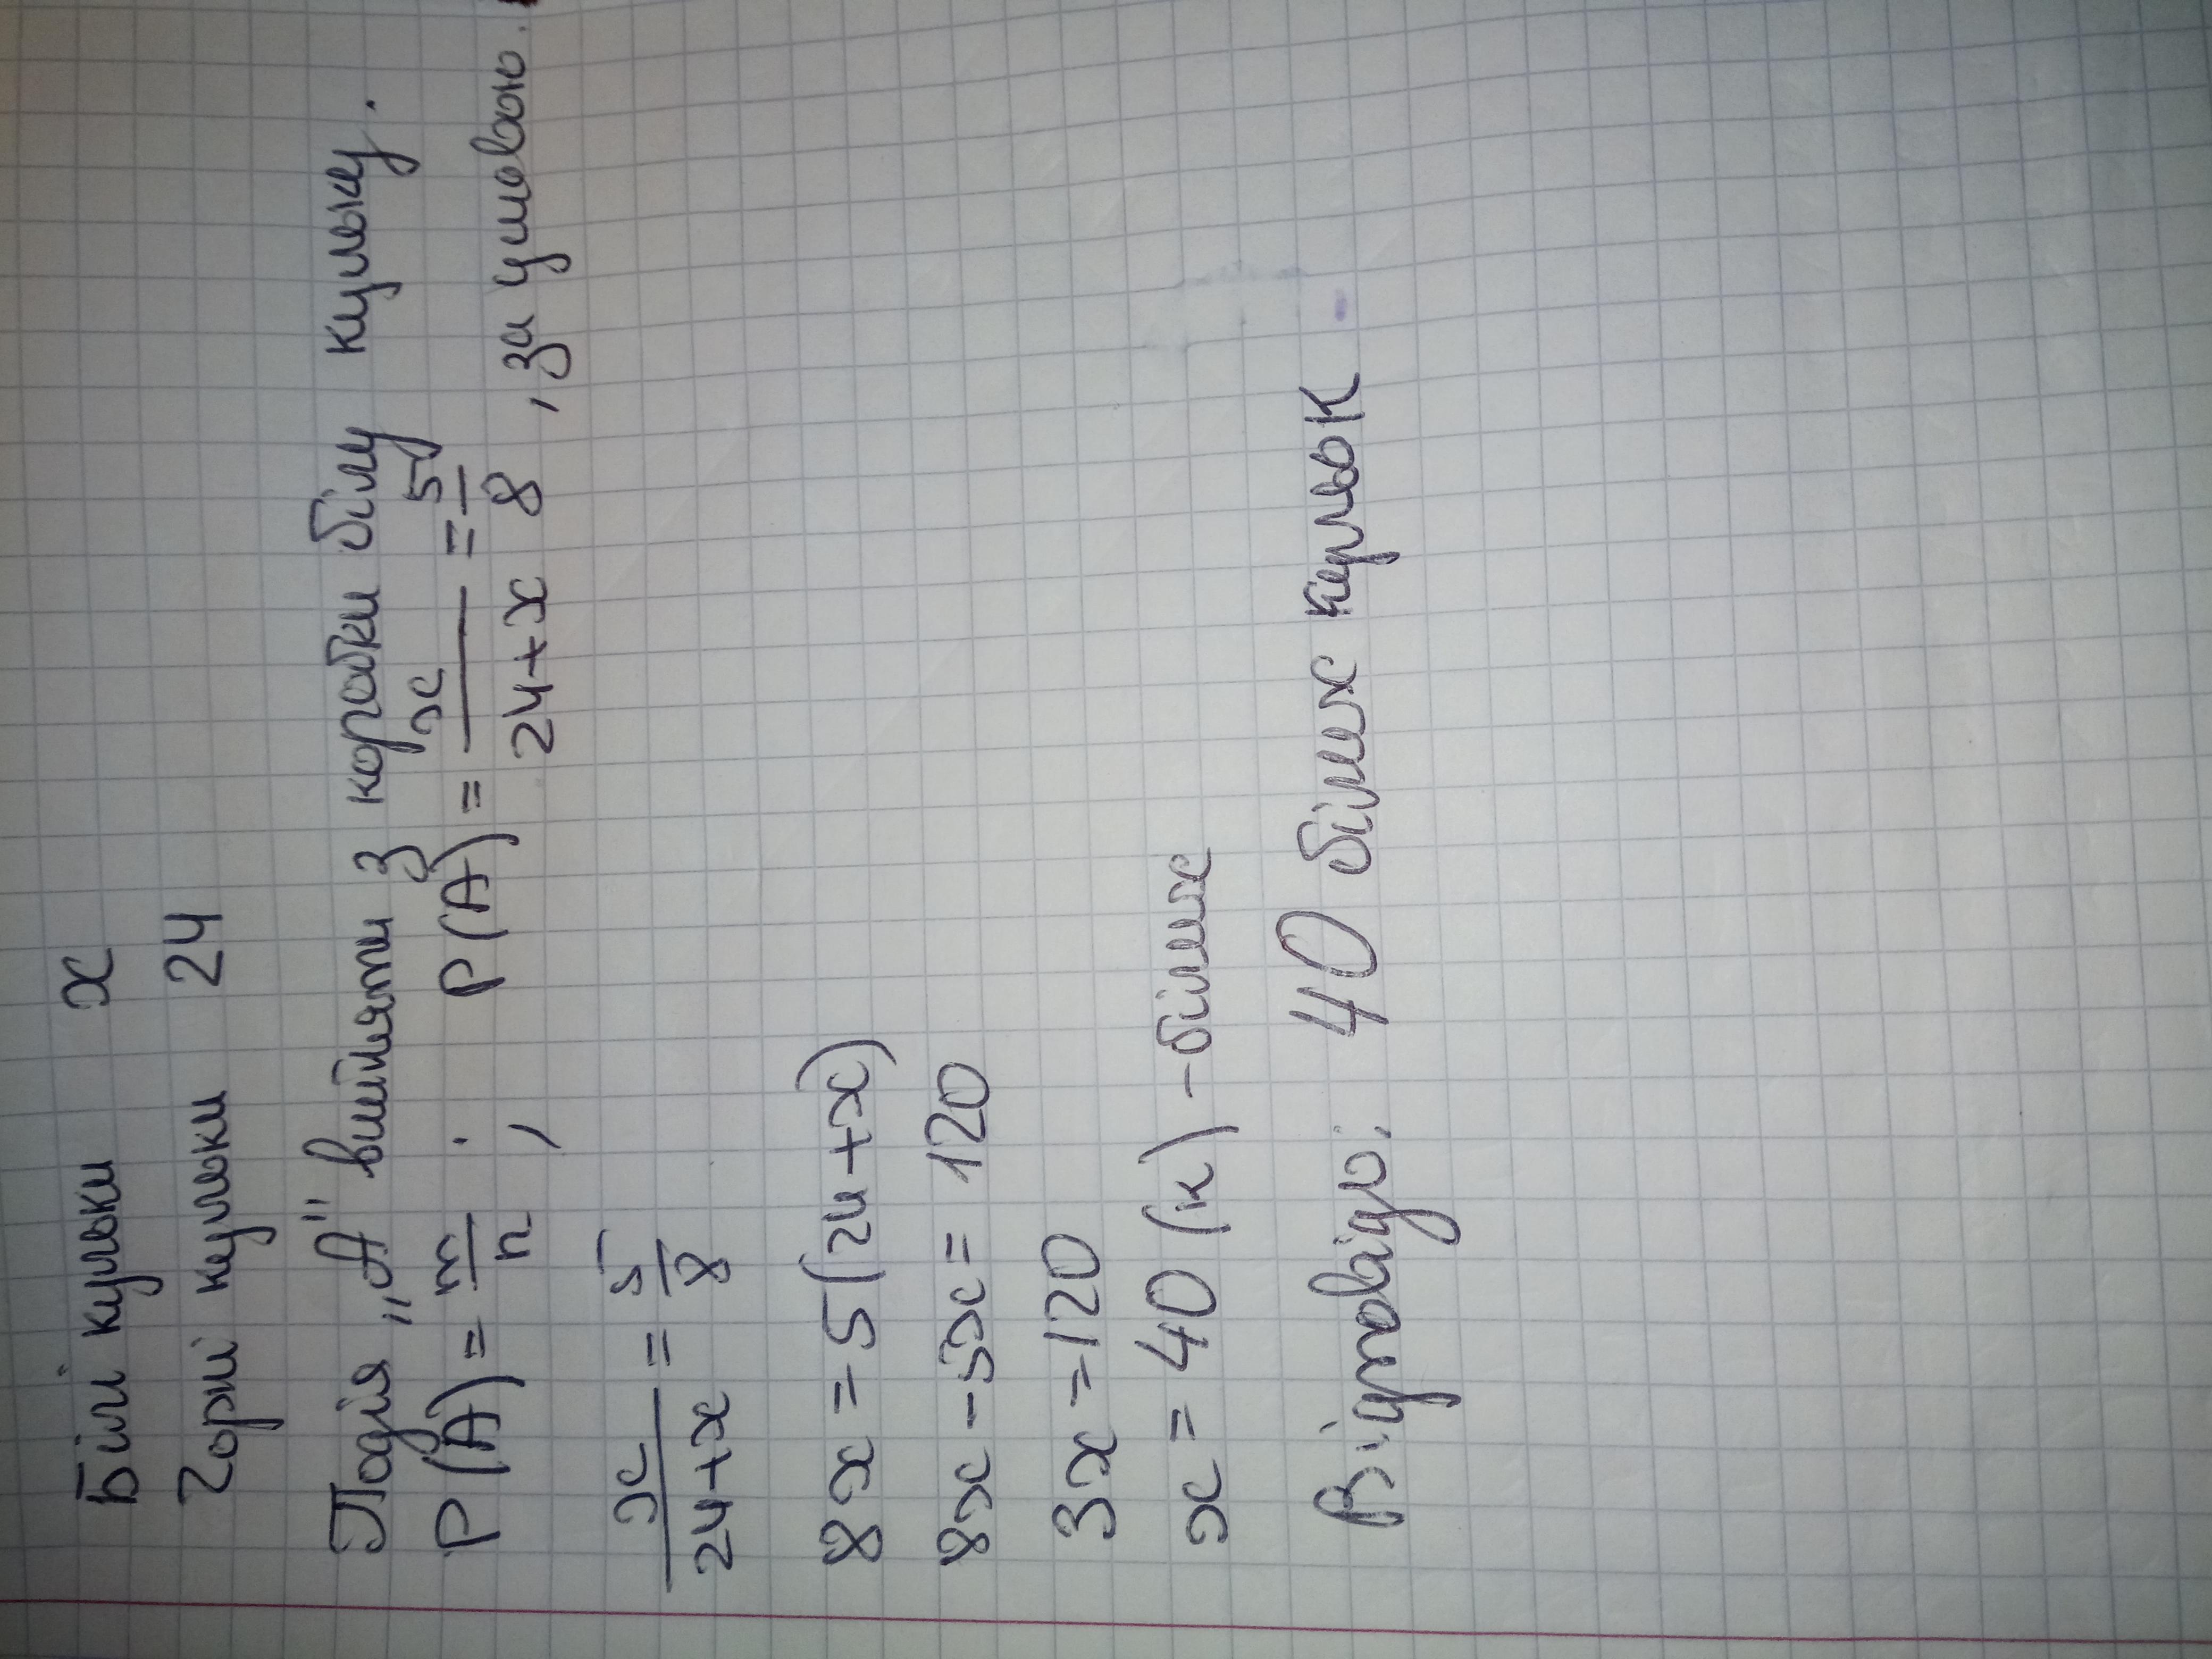 Білі кульки x
Чорні кульки 24
Подія „А" вийняти з коробки білу кульку.
P(A) = m/n ; P(A) = x/(24+x) = 5/8 , за умовою.
x/(24+x) = 5/8
8x = 5(24+x)
8x - 5x = 120
3x = 120
x = 40 (к) - білих
Відповідь: 40 білих кульок